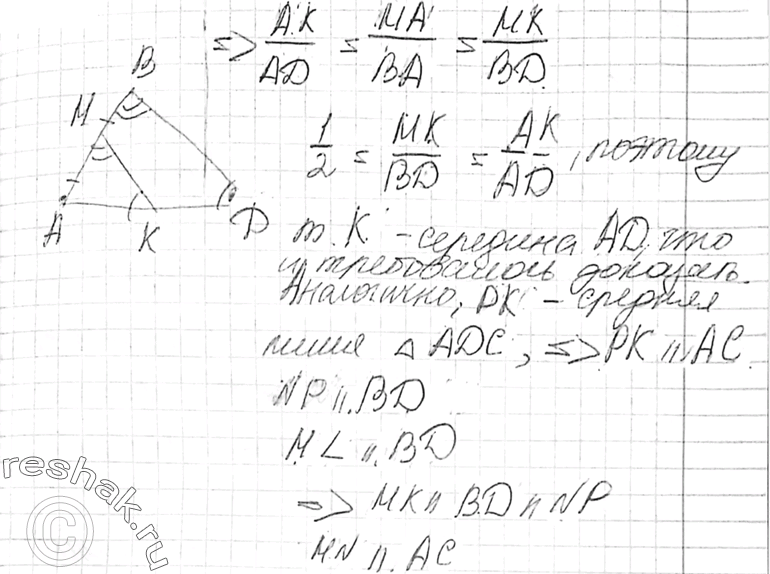 => AK/AD = MA/BA = MK/BD
B
M
A K D
1/2 = MK/BD = AK/AD, поэтому
т. K - середина AD, что
и требовалось доказать.
Аналогично, PK - средняя
линия △ ADC, => PK || AC
NP || BD
ML || BD
=> MK || BD || NP
MN || AC
reshak.ru
©